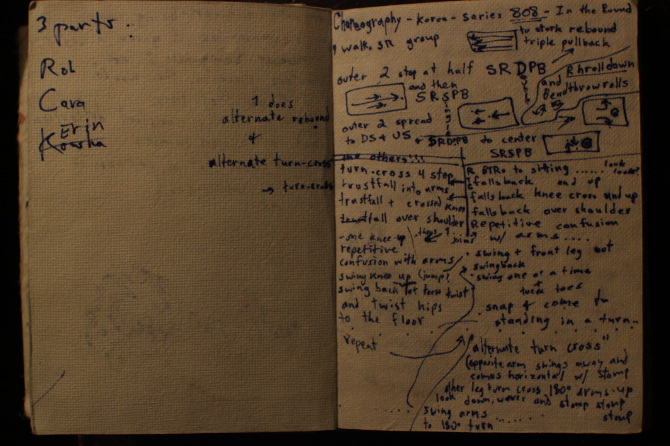 3 parts:
Rob
Cara
Erin
1 does
alternate rebound
&
alternate turn-cross
→ turn-cross
Choreography - Korea - Series 808 - In the Round
walk, SR group
to start rebound
triple pullback
outer 2 stop at half SRDPB
and then
SRSPB
& hrolldown
and
throwrolls
outer 2 spread
to DS & US & SRDPB to center
SRSPB
me others!!!
turn-cross 4 stop
trustfall into arms
trustfall + crossed knee
fall over shoulder
- one knee up
repetitive
confusion with arms
swing knee up (jump)
swing back let foot twist
and twist hips
to the floor
repeat
R STRs to sitting ......
falls back and up
falls back knee cross and up
falls back over shoulder
Repetitive confusion
w/ arms ....
• swing + front leg out
swingback
• swing one at a time
tuck toes
snap & come to
standing in a turn..
"alternate turn cross"
(opposite arm swings away and
comes horizontal w/ stomp
other leg turn cross 180° arms-up
look down, waver and stomp stomp
stomp
swing arms
to 180° turn